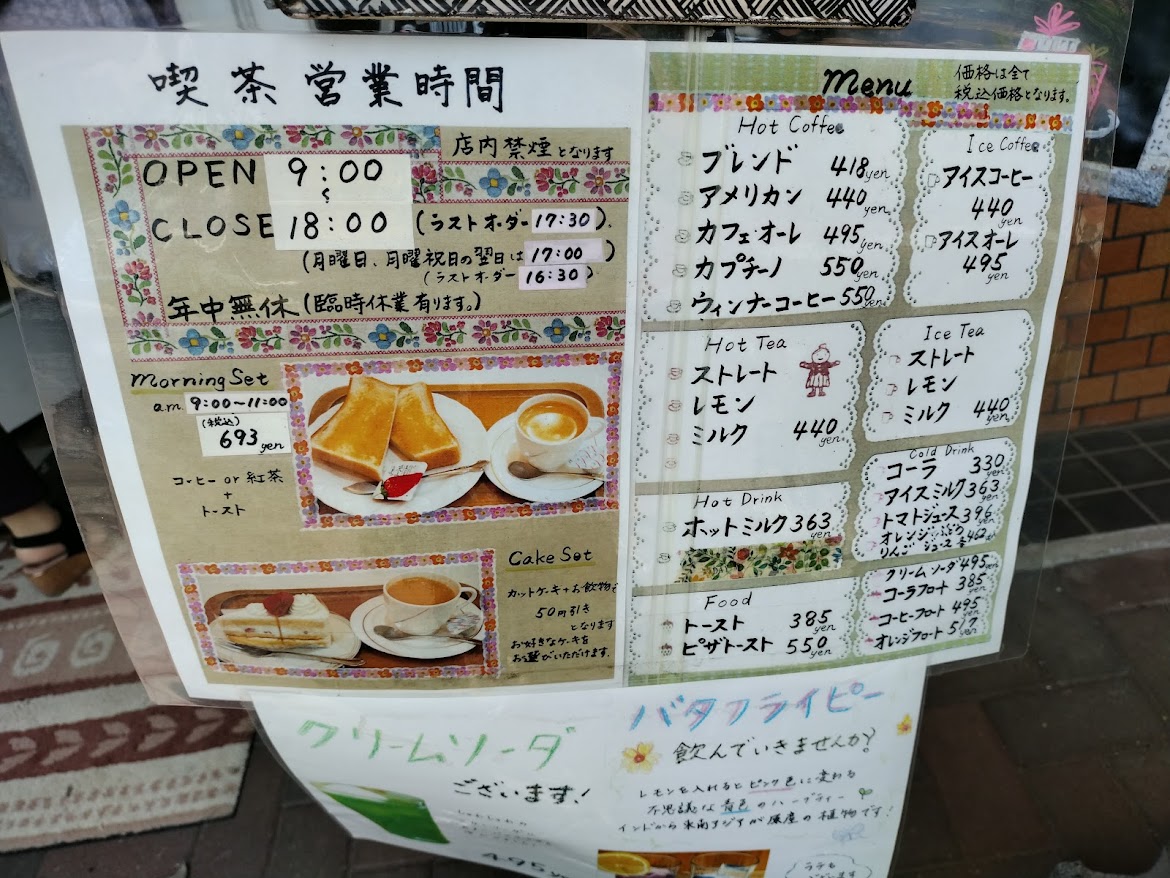 喫茶営業時間
OPEN 9:00
〜
CLOSE 18:00 (ラストオーダー 17:30).
店内禁煙となります
(月曜日、月曜祝日の翌日は 17:00)
(ラストオーダー 16:30)
年中無休(臨時休業有ります。)
Morning Set
a.m. 9:00~11:00
(税込)
693yen
コーヒー or 紅茶
+
トースト
Cake Set
カットケーキ+お飲物で
50円引き
となります
お好きなケーキを
お選びいただけます。
Menu
価格は全て
税込価格となります。
Hot Coffee
ブレンド 418yen
アメリカン 440yen
カフェオーレ 495yen
カプチーノ 550yen
ウィンナーコーヒー 550yen
Hot Tea
ストレート
レモン
ミルク 440yen
Hot Drink
ホットミルク 363yen
Food
トースト 385yen
ピザトースト 550yen
Ice Coffee
アイスコーヒー
440yen
アイスオーレ
495yen
Ice Tea
ストレート
レモン
ミルク 440yen
Cold Drink
コーラ 330yen
アイスミルク 363yen
トマトジュース 396yen
オレンジ
りんごジュース 各462
クリームソーダ 495yen
コーラフロート 385yen
コーヒーフロート 495yen
オレンジフロート 517yen
クリームソーダ
ございます!
495
バタフライピー
飲んでいきませんか?
レモンを入れるとピンク色に変わる
不思議な青色のハーブティー
インドから東南アジアが原産の植物です!
ラテも